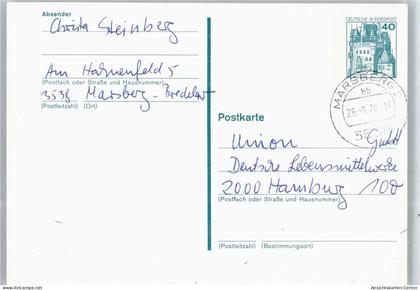 Absender
Christa Steinberg
Am Hahnenfeld 5
(Postfach oder Straße und Hausnummer)
3538 Marsberg-Bredelar
(Postleitzahl) (Ort)
DEUTSCHE BUNDESPOST
40
MARSBERG
bb
3538
Postkarte
Union GmbH
Deutsche Lebensmittelwerke
2000 Hamburg 100
(Postfach oder Straße und Hausnummer)
(Postleitzahl) (Bestimmungsort)
www.delcampe.net
Ansichtskarten-Center